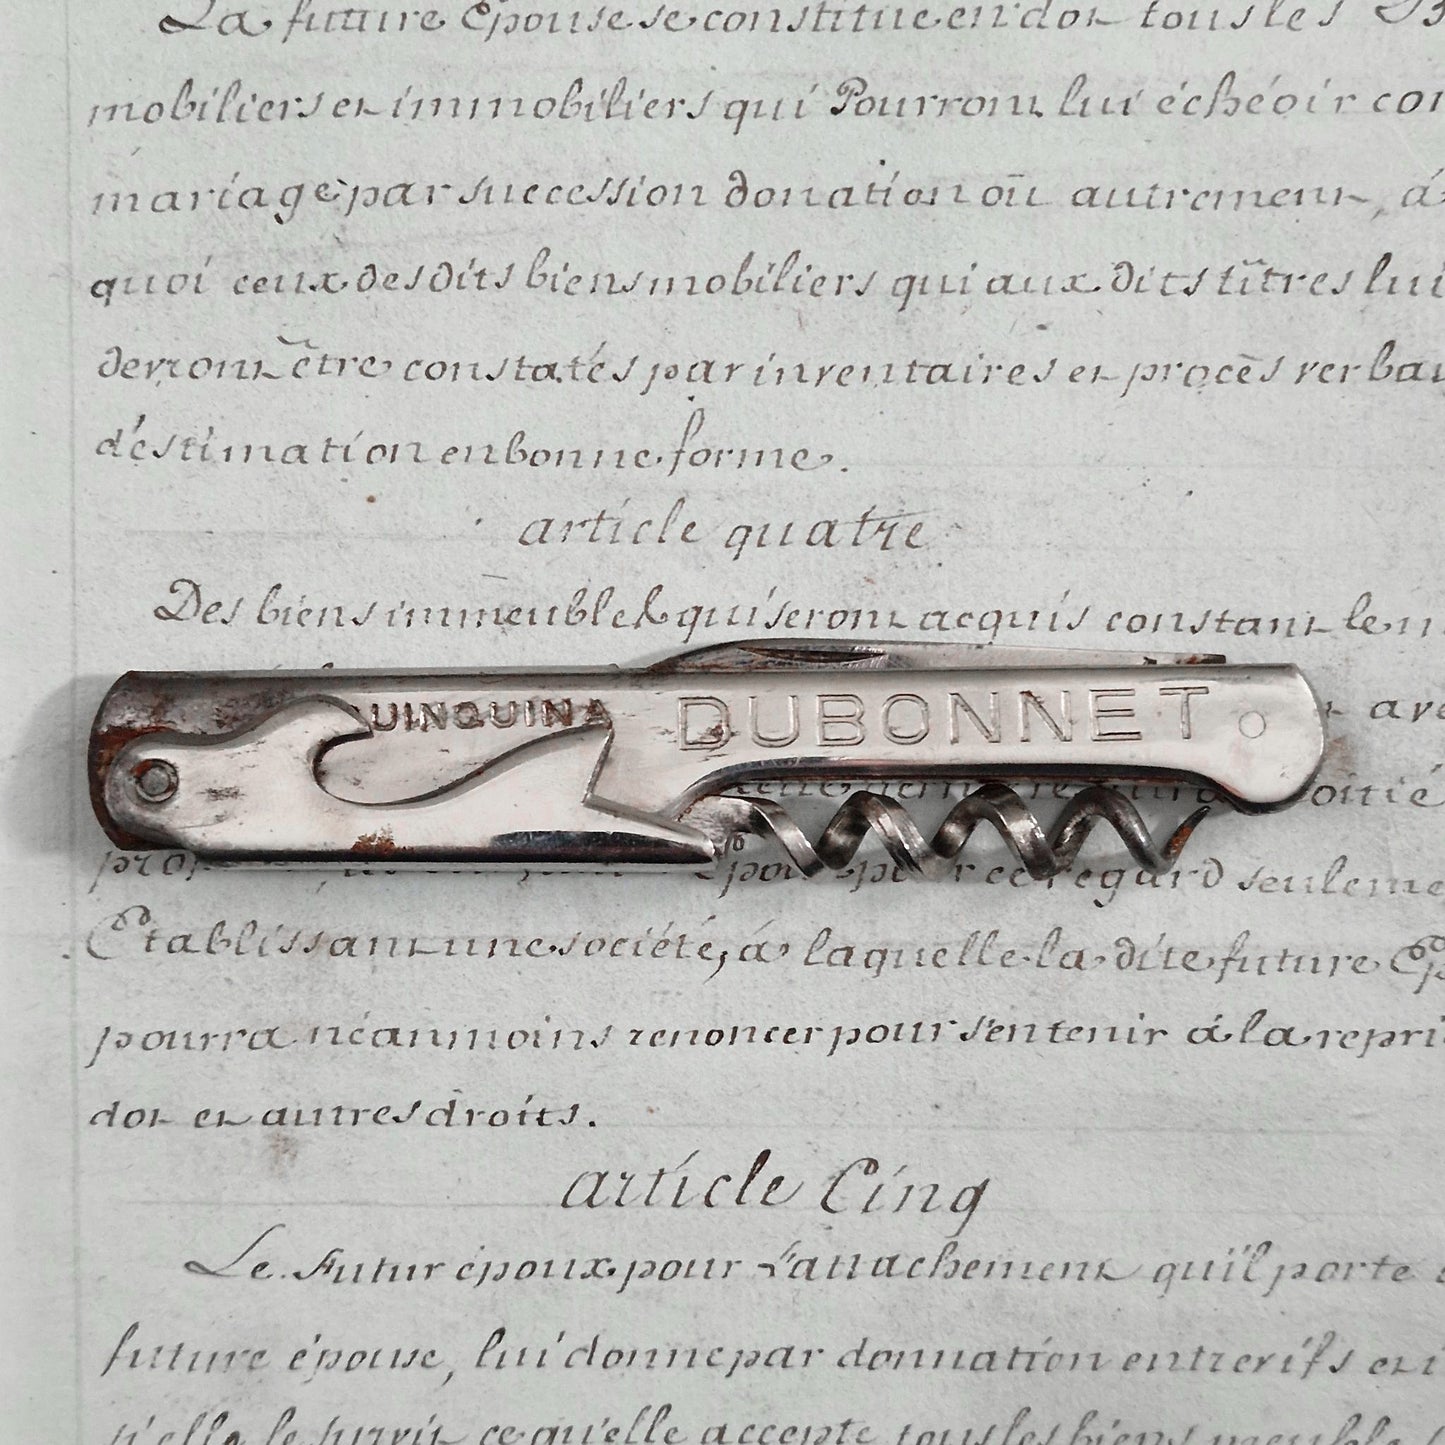 La future Epouse se constitue en dot tous les
mobiliers et immobiliers qui Pourront lui échéoir
mariage par succession donation oû autrement, á
quoi ceux des dits biens mobiliers qui aux dits tîtres lui
devront être constatés par inventaires et procēs
d'éstimation en bonne forme.
article quatre
Des biens immeubles qui seront acquis constant le
QUINQUINA DUBONNET
seuleme
Etablissant une société, á laquelle la dite future
pourra néanmoins renoncer pour s'en tenir á la
dot et autres droits.
article Cinq
Le futur époux pour L'attachement qu'il porte
future épouse, lui donne par donnation entrevifs et
ce qu'elle accepte tous les biens